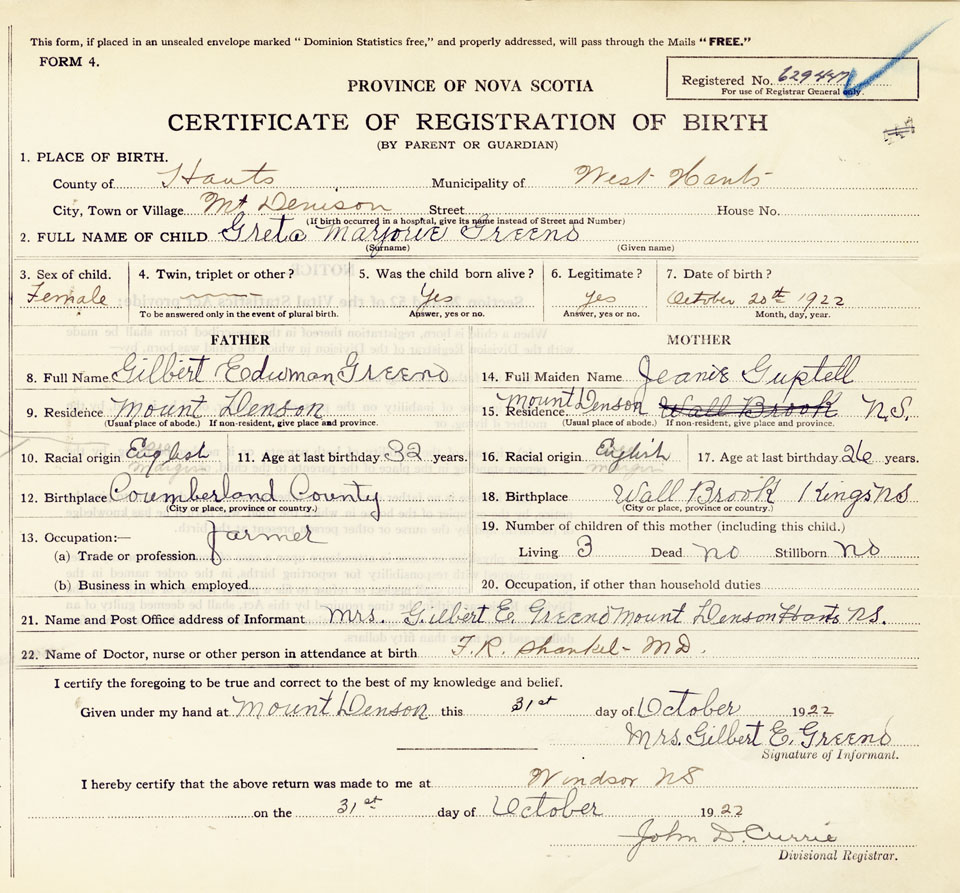 This form, if placed in an unsealed envelope marked "Dominion Statistics free," and properly addressed, will pass through the Mails "FREE."
FORM 4.
Registered No. 629447
For use of Registrar General only.
PROVINCE OF NOVA SCOTIA
CERTIFICATE OF REGISTRATION OF BIRTH
(BY PARENT OR GUARDIAN)
1. PLACE OF BIRTH.
County of Hants Municipality of West Hants
City, Town or Village Mt Denison Street House No.
(If birth occurred in a hospital, give its name instead of Street and Number)
2. FULL NAME OF CHILD Greta Marjorie Greeno
(Surname) (Given name)
3. Sex of child. 4. Twin, triplet or other? 5. Was the child born alive? 6. Legitimate? 7. Date of birth?
Female Yes yes October 20th 1922
To be answered only in the event of plural birth. Answer, yes or no. Answer, yes or no. Month, day, year.
FATHER MOTHER
8. Full Name Gilbert Edwman Greeno 14. Full Maiden Name Jeanie Guptell
9. Residence Mount Denson 15. Residence Mount Denson Wall Brook N.S.
(Usual place of abode.) If non-resident, give place and province. (Usual place of abode.) If non-resident, give place and province.
10. Racial origin English 11. Age at last birthday 32 years. 16. Racial origin English 17. Age at last birthday 26 years.
12. Birthplace Coumberland County 18. Birthplace Wall Brook Kings NS
(City or place, province or country.) (City or place, province or country.)
13. Occupation:— Farmer 19. Number of children of this mother (including this child.)
(a) Trade or profession Living 3 Dead no Stillborn No
(b) Business in which employed 20. Occupation, if other than household duties
21. Name and Post Office address of Informant Mrs. Gilbert E. Greeno Mount Denson Hants NS.
22. Name of Doctor, nurse or other person in attendance at birth F.R. Shankel - MD.
I certify the foregoing to be true and correct to the best of my knowledge and belief.
Given under my hand at Mount Denson this 31st day of October 1922
Mrs. Gilbert E. Greeno
Signature of Informant.
I hereby certify that the above return was made to me at Windsor NS
on the 31st day of October 1922
John D. Currie
Divisional Registrar.